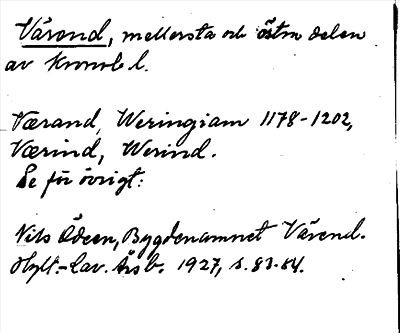 Värend, mellersta och östra delen
av Kronob. l.
Værand, Weringiam 1178-1202,
Værind, Werind.
Se för övrigt:
Nils Ödeen, Bygdenamnet Värend.
Hylt.-Cav. Årsb. 1927, s. 83-84.